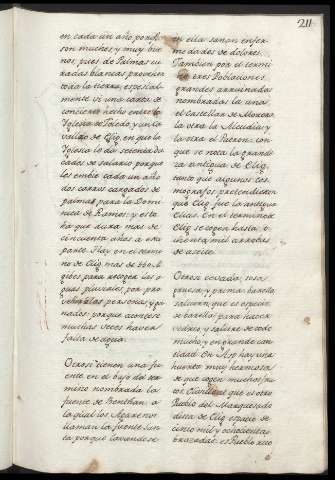 211
en cada un año porque
son muchos y muy bue
nos, pues de Palmas cu
radas blancas proveien
toda la tierra, especial
mente vi una carta de
concierto hecho entre la
Iglesia de Toledo y un la
valido de Elig, en que la
Iglesia le da seiscientos du
cados de salario porque
les embie cada un año
dos carros cargados de
palmas para la Domi
nica de Ramos: y esto
ha que dura mas de
cincuenta años a esta
parte. Hay en el termi
no de Elig mas de 550 Al
gibes para recoger las a
guas pluviales por pro
veher a las personas, y ga
nados, porque acontese
muchas veces haver
falta de agua.
Otrosi tienen una fu
ente en el dicho del ter
mino nombrada la
fuente de Benithan, a
la qual los Agarenos
llaman la fuente San
ta porque lavandose
en ella sanan enfer
medades de dolores.
Tambien por el termi
no tres Poblaciones
grandes arruinadas
nombradas la una
el castellar de Morera
la otra la Alcudia y
la otra el Pacron: con
que se nota la grande
za antigua de Elig,
tanto que algunos cos
mografos pretendieron
que Elig fue la antigua
Elias. En el termino de
Elig se cogen hasta o
chenta mil arrobas
de aceite.
Otrosi cevada, sosa
gruesa, y prima, barrella
salicorn, que es especie
de barrella, para hacer
vidrio, y salitre de todo
mucho y en grande can
tidad. En Asp hay una
huerta muy hermosa
de que cogen muchos fru
tos. Crivillent que es otro
Pueblo del Marquesado
dista de Elig espacio de
cinco mil y ochocientas
brazadas: es Pueblo rico